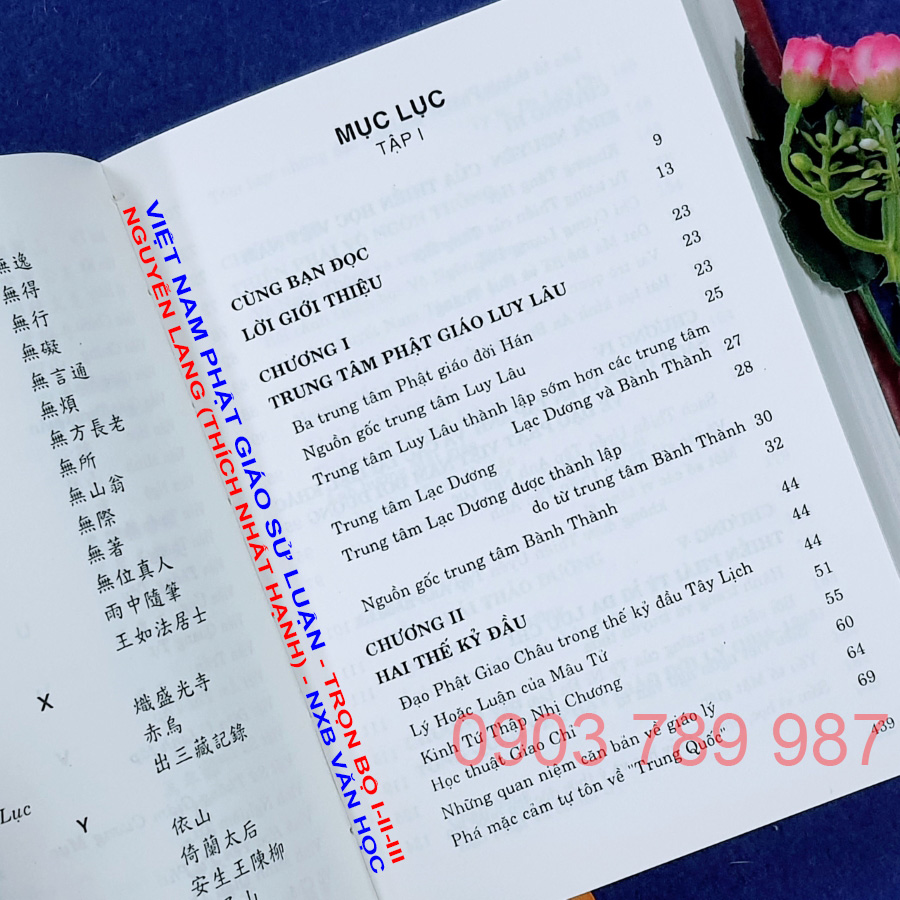 無逸
無得
無行
無礙
無言通
無煩
無方長老
無所
無山翁
無際
無著
無位真人
雨中隨筆
王如法居士
X
熾盛光寺
赤烏
出三藏記錄
Lục
Y
依山
倚蘭太后
安生王陳柳
VIỆT NAM PHẬT GIÁO SỬ LUẬN - TRỌN BỘ I-II-III
NGUYỄN LANG (THÍCH NHẤT HẠNH) - NXB VĂN HỌC
MỤC LỤC
TẬP I
CÙNG BẠN ĐỌC 9
LỜI GIỚI THIỆU 13
CHƯƠNG I 23
TRUNG TÂM PHẬT GIÁO LUY LÂU 23
Ba trung tâm Phật giáo đời Hán 23
Nguồn gốc trung tâm Luy Lâu 25
Trung tâm Luy Lâu thành lập sớm hơn các trung tâm
Lạc Dương và Bành Thành 27
Trung tâm Lạc Dương 28
Trung tâm Lạc Dương được thành lập
do từ trung tâm Bành Thành 30
Nguồn gốc trung tâm Bành Thành 32
CHƯƠNG II 44
HAI THẾ KỶ ĐẦU 44
Đạo Phật Giao Châu trong thế kỷ đầu Tây Lịch 44
Lý Hoặc Luận của Mâu Tử 51
Kinh Tứ Thập Nhị Chương 55
Học thuật Giao Chỉ 60
Những quan niệm căn bản về giáo lý 64
Phá mặc cảm tự tôn về "Trung Quốc" 69
439
0903 789 987